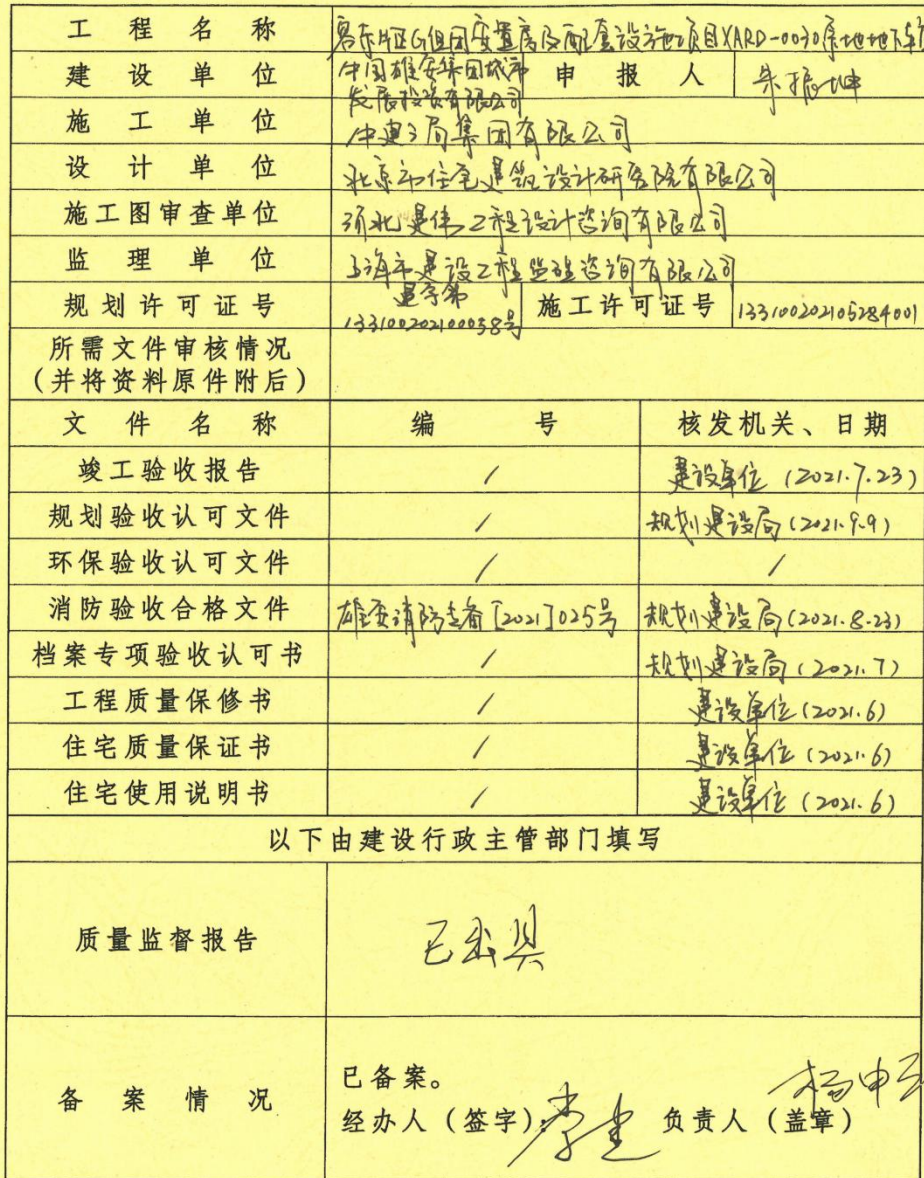 工程名称 容东片区G组团安置房及配套设施项目XARD-0030宗地地下车库
建设单位 中国雄安集团城市发展投资有限公司 申报人 朱振坤
施工单位 中建三局集团有限公司
设计单位 北京市住宅建筑设计研究院有限公司
施工图审查单位 河北建伟工程设计咨询有限公司
监理单位 上海市建设工程监理咨询有限公司
规划许可证号 建字第133100202100058号 施工许可证号 133100202105284001
所需文件审核情况
(并将资料原件附后)
文件名称 编号 核发机关、日期
竣工验收报告 / 建设单位(2021.7.23)
规划验收认可文件 / 规划建设局(2021.9.9)
环保验收认可文件 / /
消防验收合格文件 雄安消防专备[2021]025号 规划建设局(2021.8.23)
档案专项验收认可书 / 规划建设局(2021.7)
工程质量保修书 / 建设单位(2021.6)
住宅质量保证书 / 建设单位(2021.6)
住宅使用说明书 / 建设单位(2021.6)
以下由建设行政主管部门填写
质量监督报告 已出具
备案情况 已备案。
经办人(签字): 负责人(盖章)